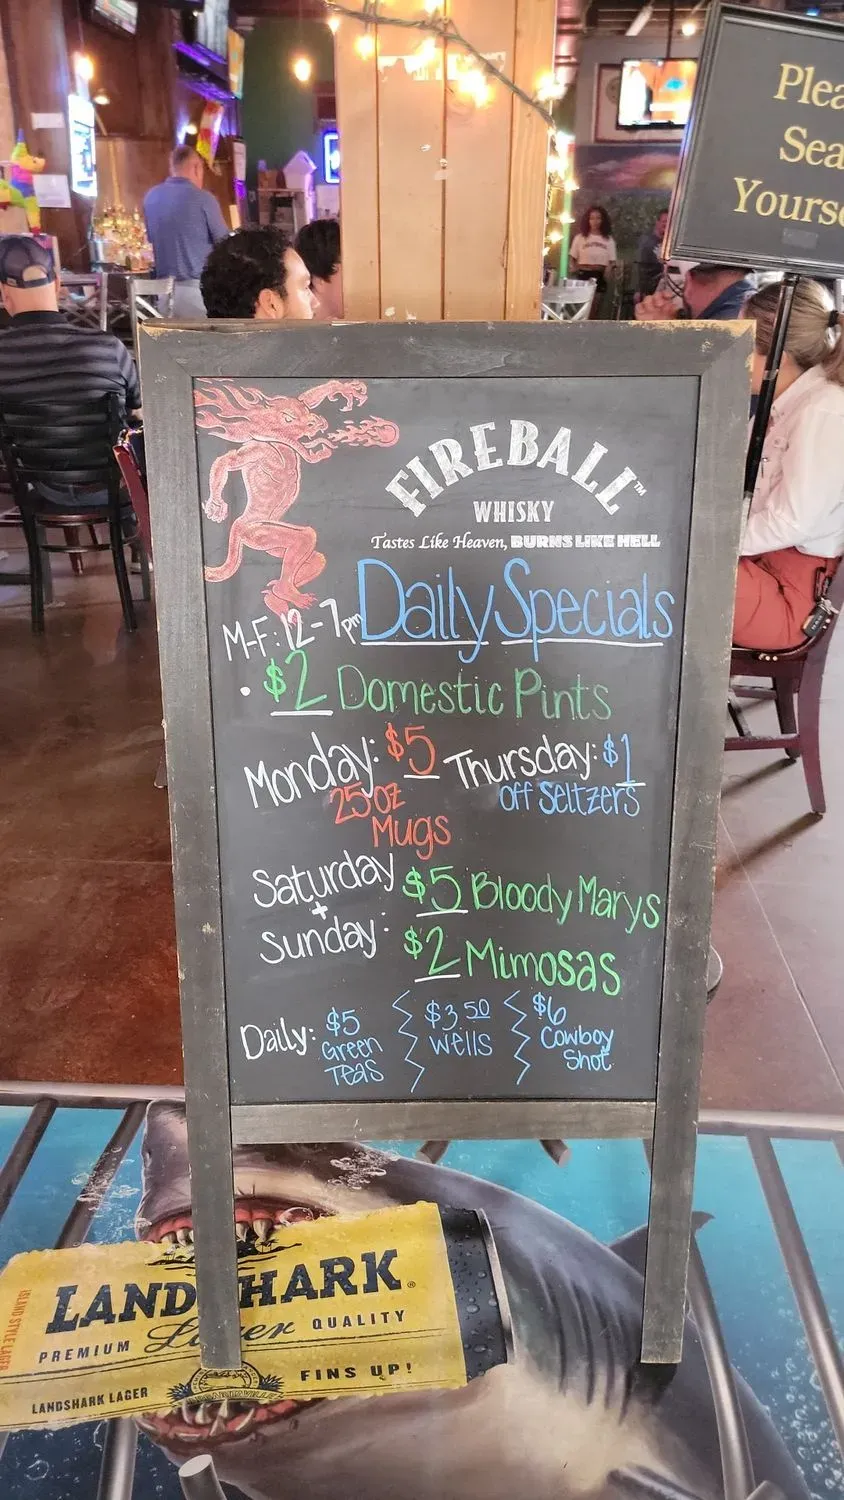 Plea
Sea
Yourse
FIREBALL™
WHISKY
Tastes Like Heaven, BURNS LIKE HELL
Daily Specials
M-F: 12-7pm
• $2 Domestic Pints
Monday: $5
25oz
Mugs
Thursday: $1
off Seltzers
Saturday
+
Sunday:
$5 Bloody Marys
$2 Mimosas
Daily:
$5
Green
Teas
$3.50
Wells
$6
Cowboy
Shot
ISLAND STYLE LAGER
LANDSHARK®
PREMIUM Lager QUALITY
LANDSHARK LAGER
FINS UP!